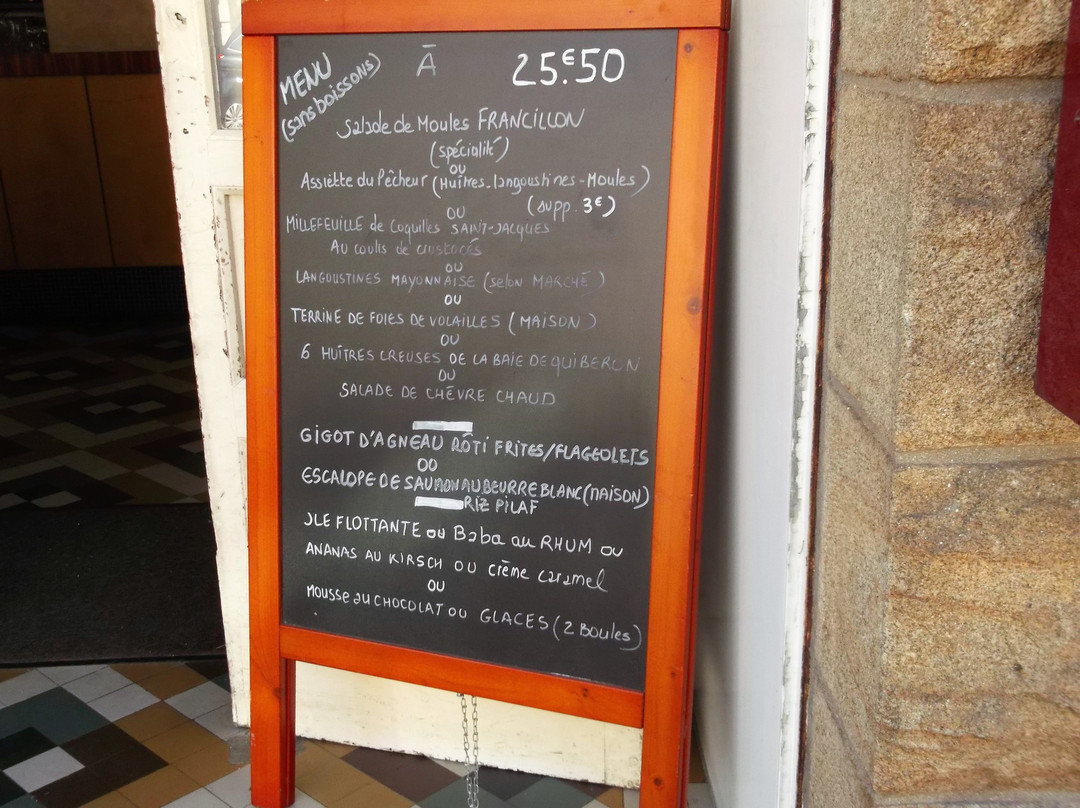 MENU
(sans boissons)
À 25€.50
Salade de Moules FRANCILLON
(spécialité)
OU
Assiètte du Pêcheur (Huîtres-langoustines-Moules)
(supp. 3€)
OU
MILLEFEUILLE de Coquilles SAINT-JACQUES
Au coulis de crustacés
OU
LANGOUSTINES MAYONNAISE (selon MARCHÉ)
OU
TERRINE DE FOIES DE VOLAILLES (MAISON)
OU
6 HUÎTRES CREUSES DE LA BAIE DE QUIBERON
OU
SALADE DE CHÈVRE CHAUD
GIGOT D'AGNEAU RÔTI FRITES/FLAGEOLETS
OU
ESCALOPE DE SAUMON AU BEURRE BLANC (MAISON)
RIZ PILAF
ILE FLOTTANTE ou Baba au RHUM ou
ANANAS AU KIRSCH OU crème caramel
OU
Mousse au CHOCOLAT OU GLACES (2 Boules)